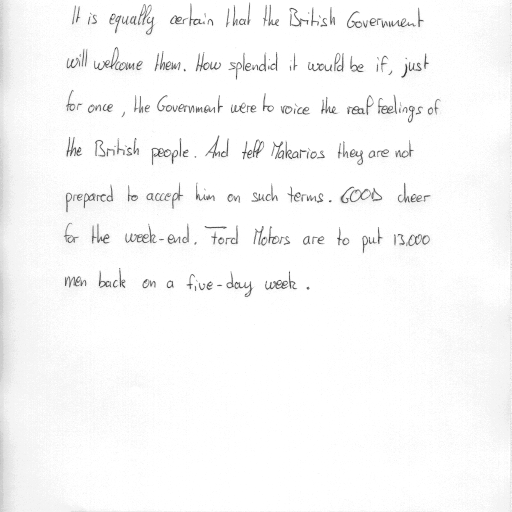 It is equally certain that the British Government
will welcome them. How splendid it would be if, just
for once, the Government were to voice the real feelings of
the British people. And tell Makarios they are not
prepared to accept him on such terms. GOOD cheer
for the week-end. Ford Motors are to put 13,000
men back on a five-day week.